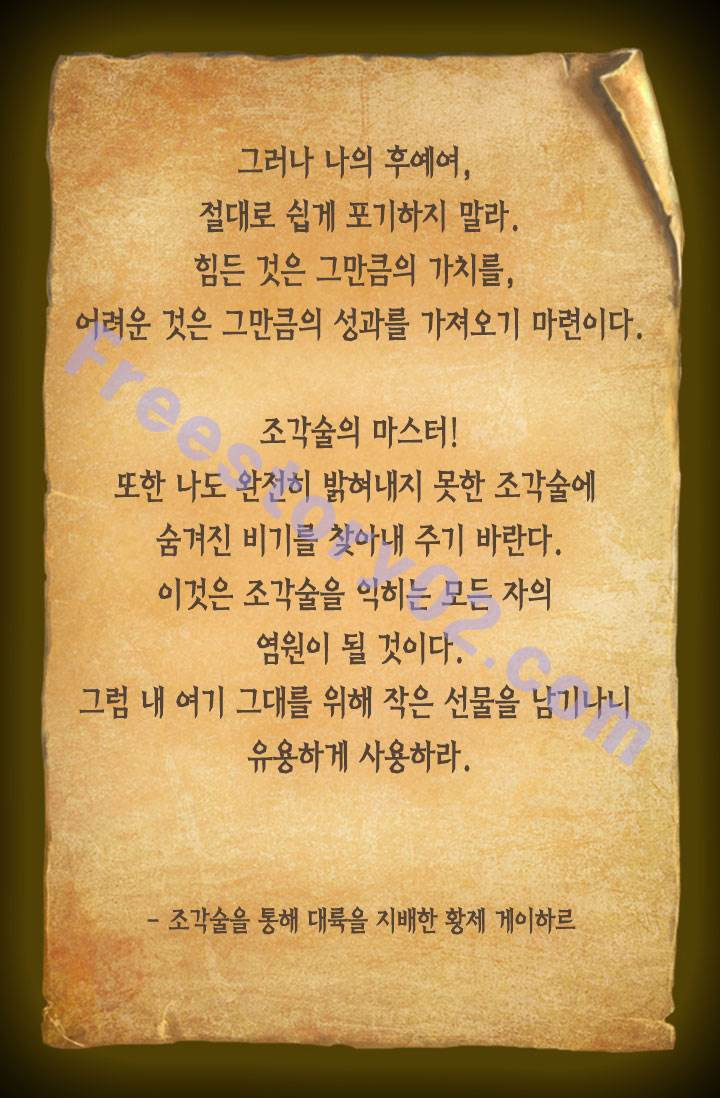 그러나 나의 후예여,
절대로 쉽게 포기하지 말라.
힘든 것은 그만큼의 가치를,
어려운 것은 그만큼의 성과를 가져오기 마련이다.
조각술의 마스터!
또한 나도 완전히 밝혀내지 못한 조각술에
숨겨진 비기를 찾아내 주기 바란다.
이것은 조각술을 익히는 모든 자의
염원이 될 것이다.
그럼 내 여기 그대를 위해 작은 선물을 남기나니
유용하게 사용하라.
- 조각술을 통해 대륙을 지배한 황제 게이하르
Freestory02.com